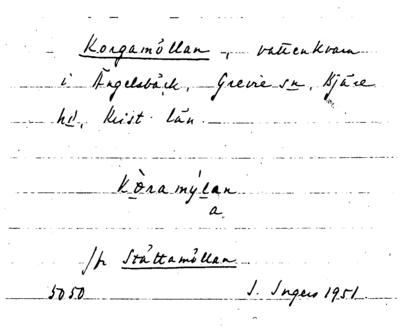 Korgamöllan, vattenkvarn
i Ängelsbäck, Grevie sn, Bjäre
hd, Krist. län.
kòramýlan
a
/jr Ståttamöllan
5050 I. Ingers 1951.